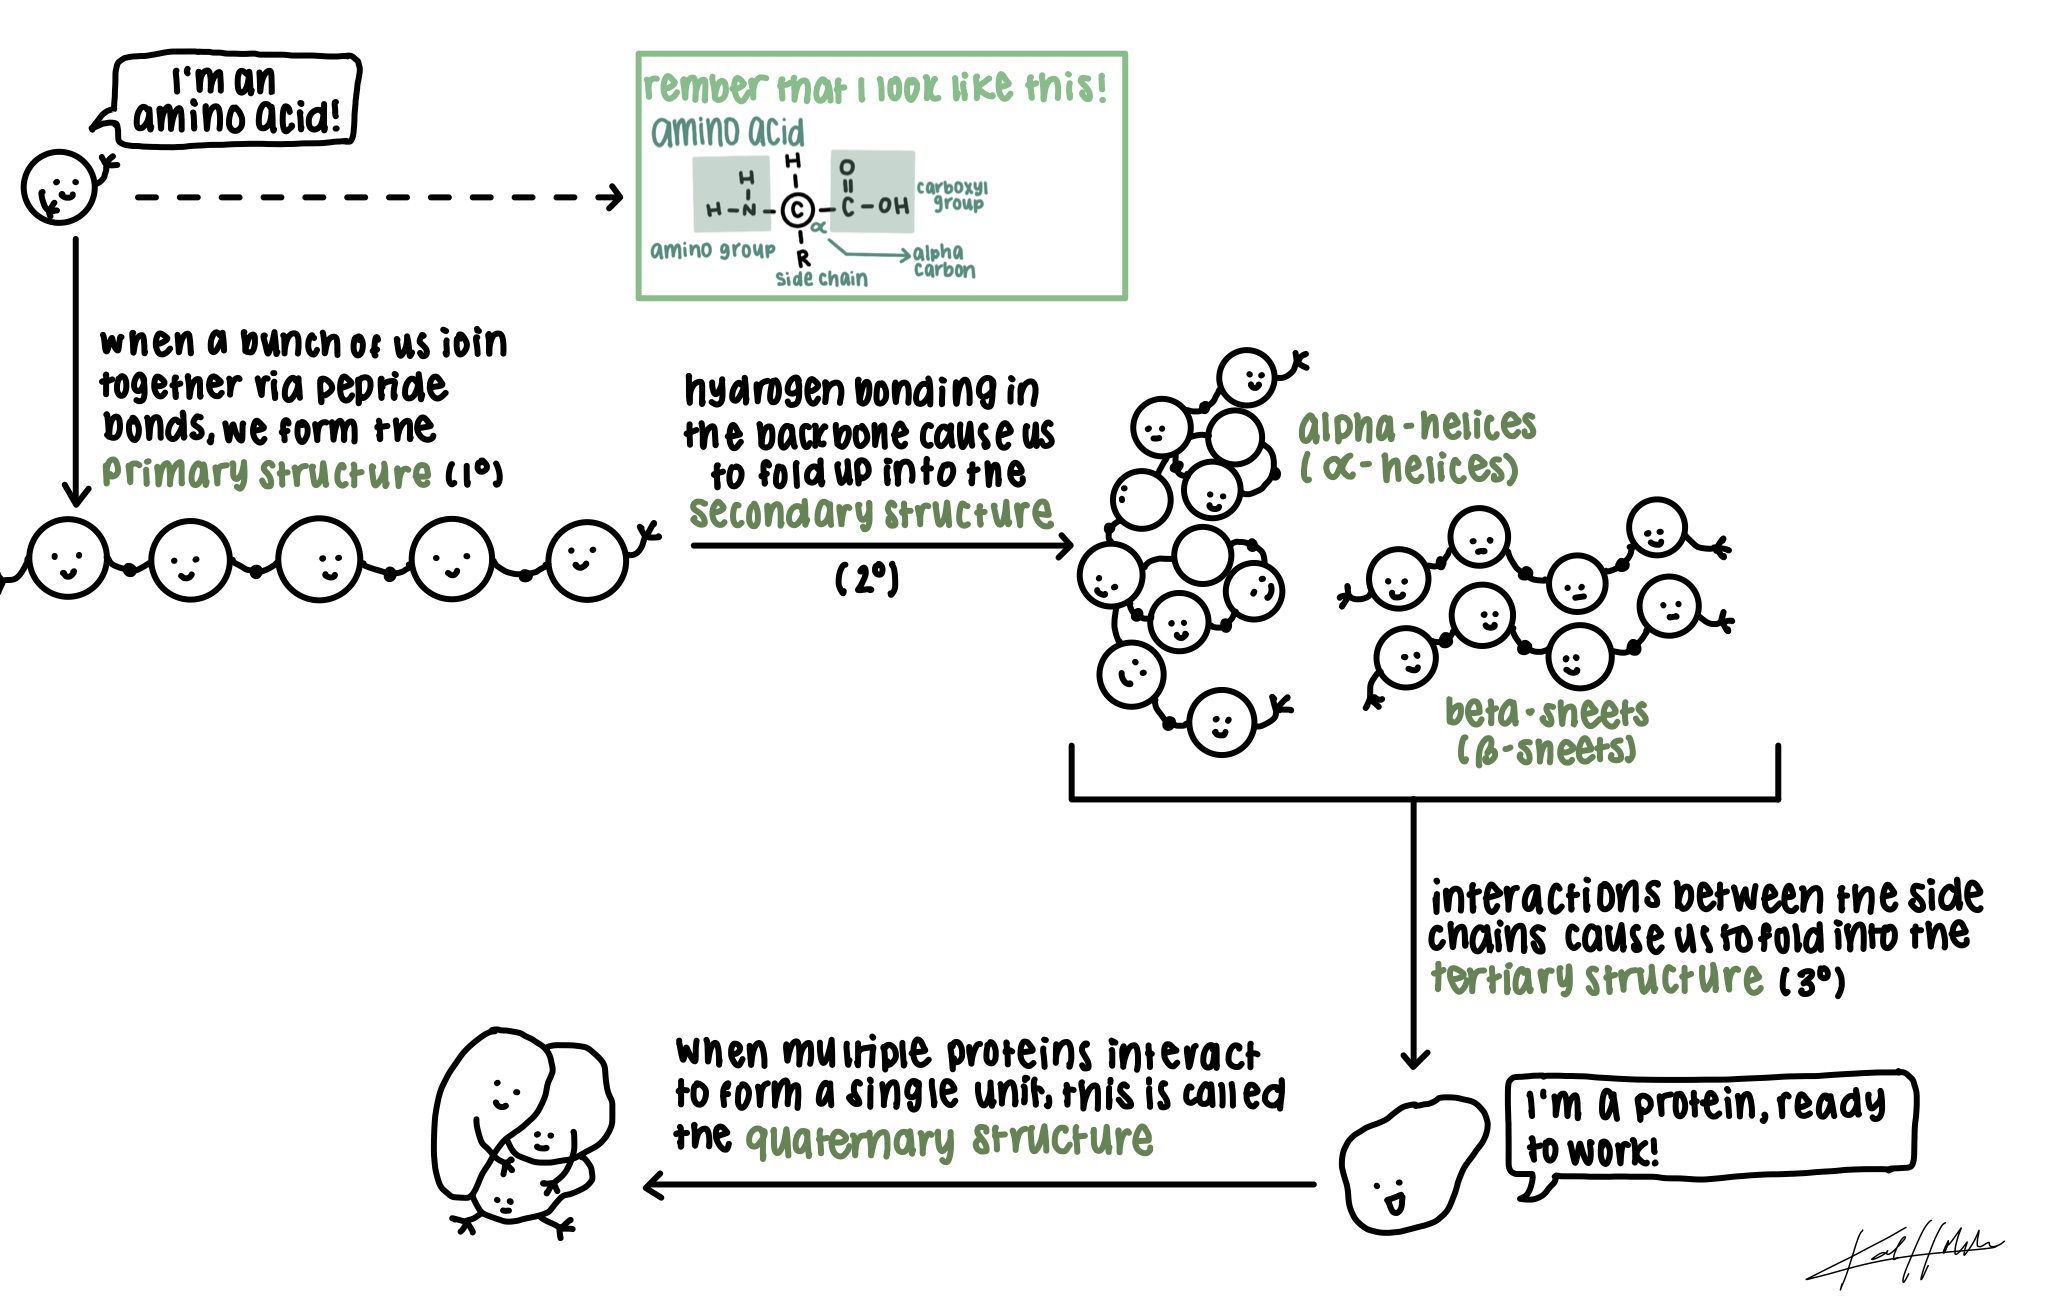 I'm an
amino acid!
rember that I look like this!
amino acid
H
O
H
H-N-C-C-OH
α
R
carboxyl
group
amino group
alpha
carbon
side chain
when a bunch of us join
together via peptide
bonds, we form the
primary structure (1°)
hydrogen bonding in
the backbone cause us
to fold up into the
secondary structure
(2°)
alpha-helices
(α-helices)
beta-sheets
(β-sheets)
interactions between the side
chains cause us to fold into the
tertiary structure (3°)
I'm a protein, ready
to work!
when multiple proteins interact
to form a single unit, this is called
the quaternary structure